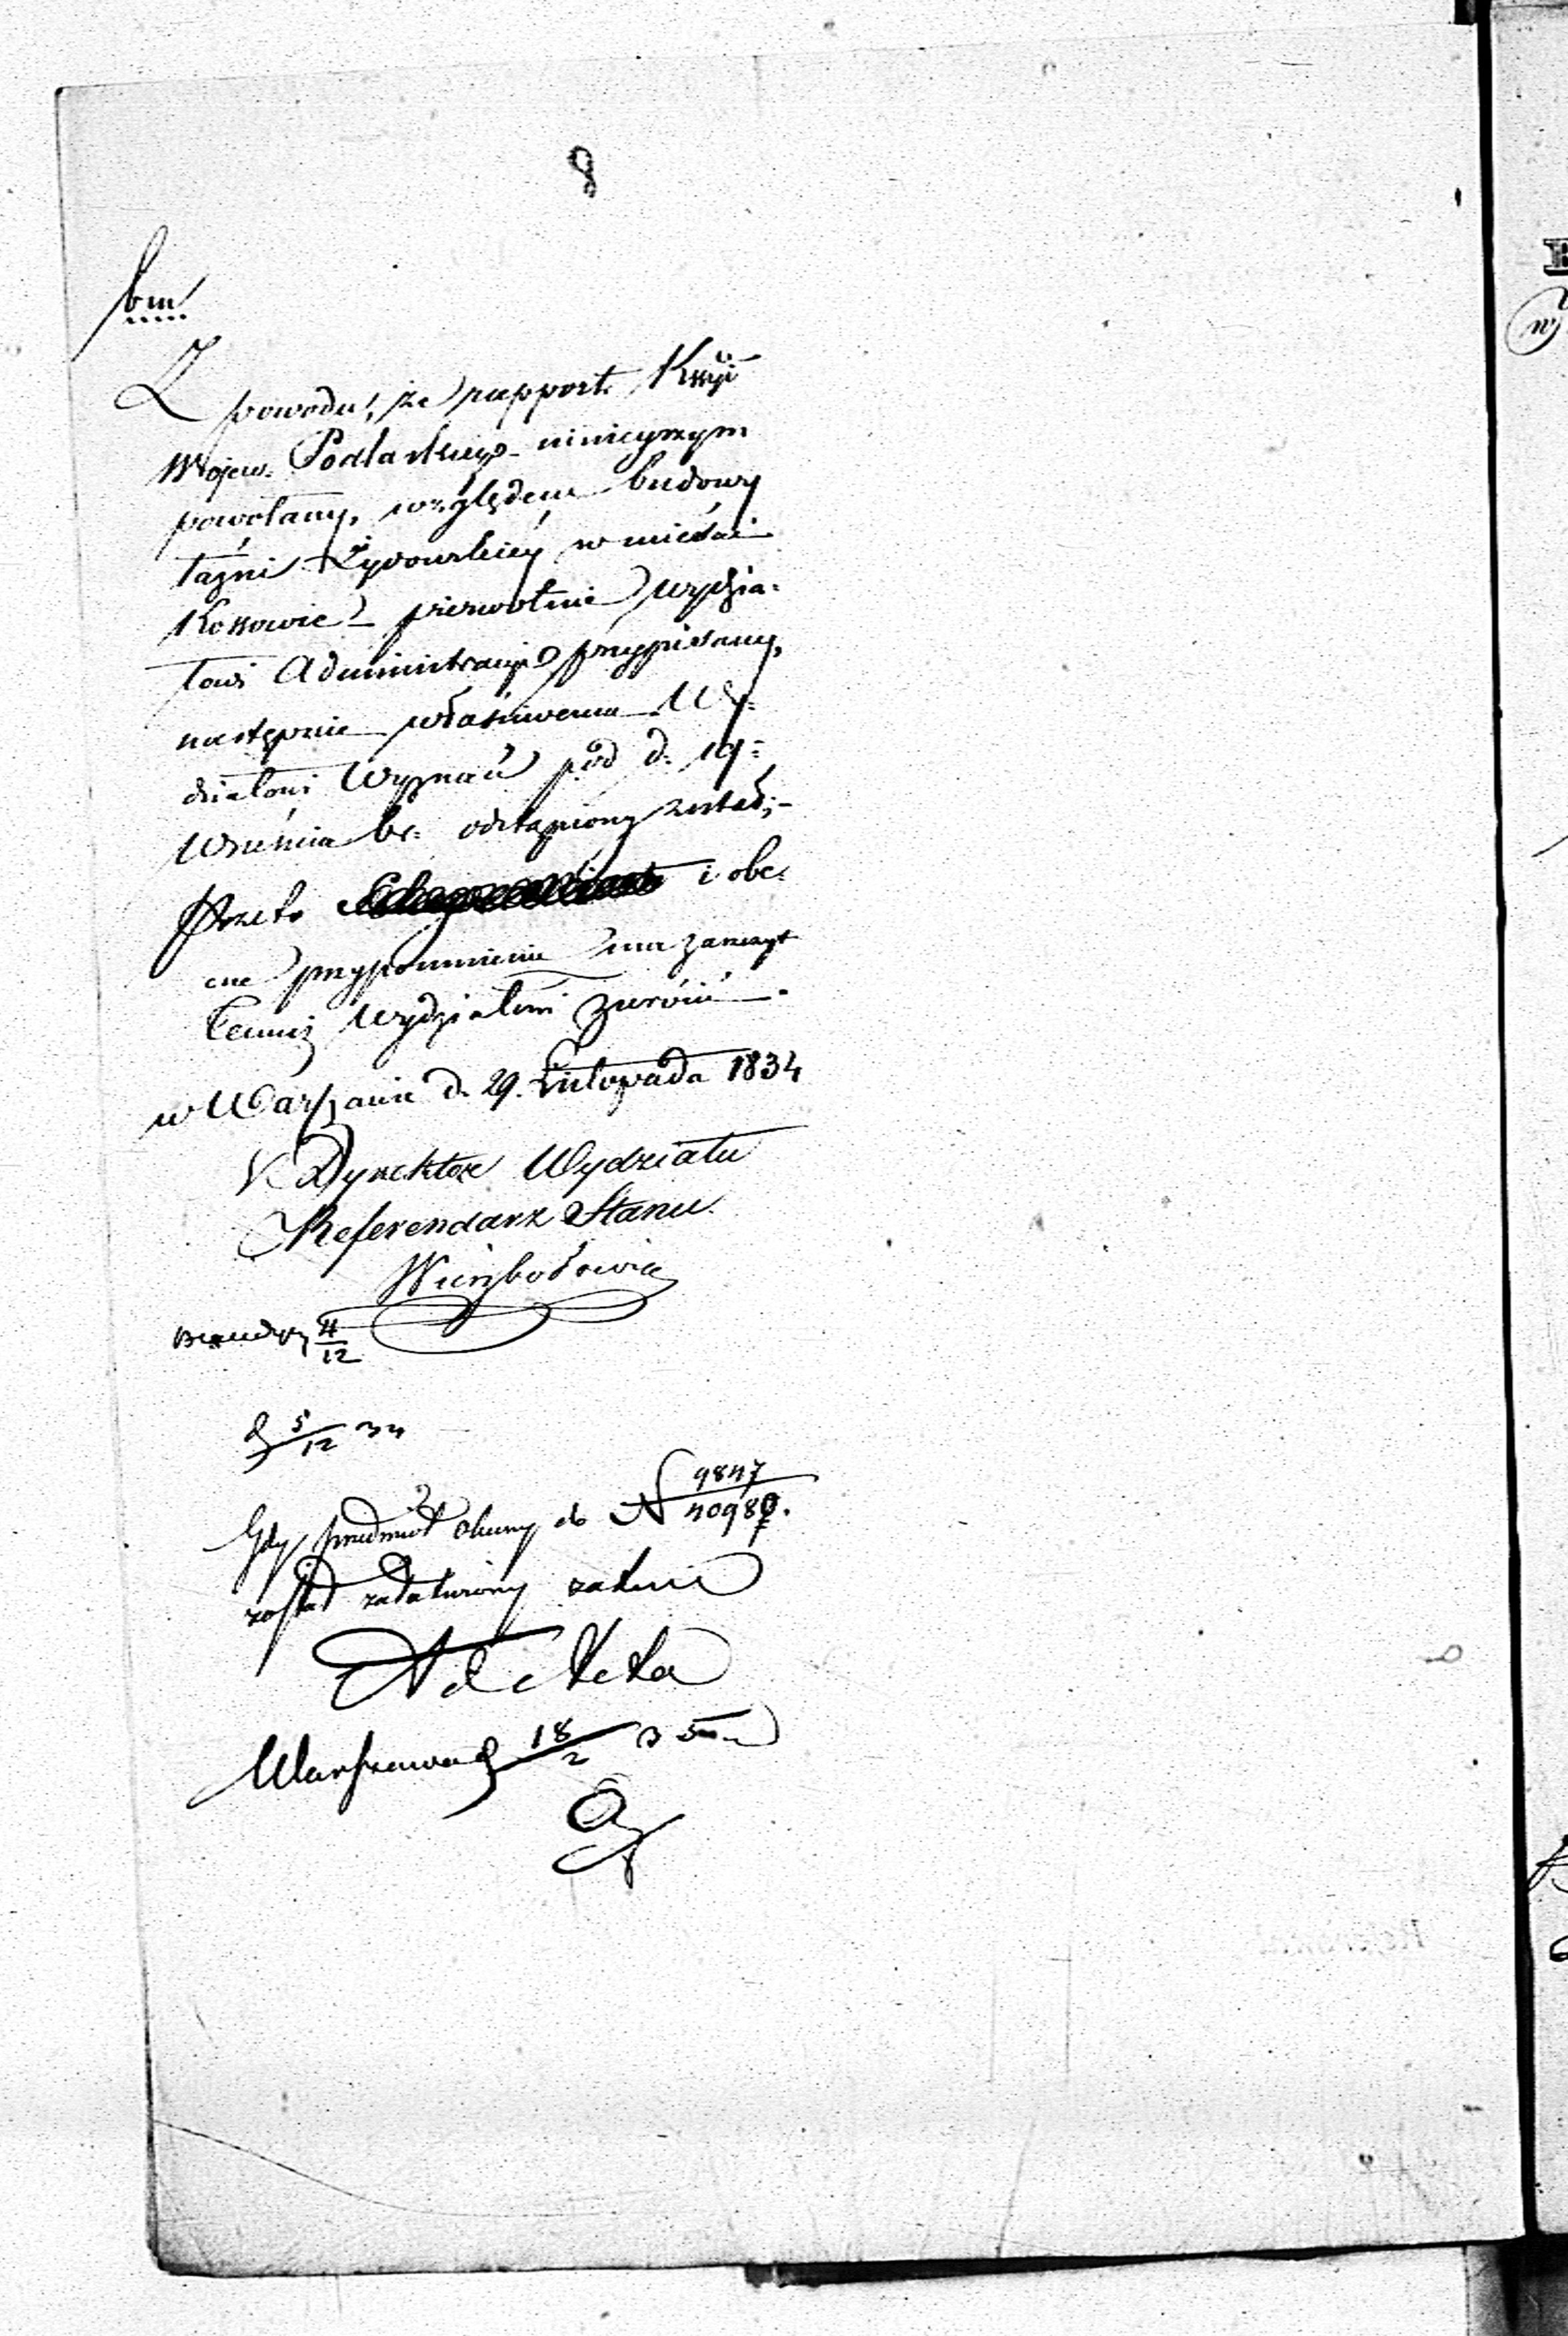 8
bm
Z powodu, że rapport Kssyi
Wojew. Podlaskiego niniejszym
powołany, względem budowy
łaźni Żydowskiey w mieście
Kossowie pierwotnie Wydzia-
łowi Administracyi przypisany,
następnie właściwemu Wy-
działowi Wyznań pod d. 19
Września br. odstąpiony został;
Przeto i obe-
cne przypomnienie ma zaszczyt
temuż Wydziałowi zwrócić.
w Warszawie d. 29. Listopada 1834
Dyrektor Wydziału
Referendarz Stanu
Wierzbołowicz
4/12
d 5/12 34
Gdy przedmiot obecny do N 9847/40980.
został załatwiony
Ad acta
Warszawa d 18/2 35